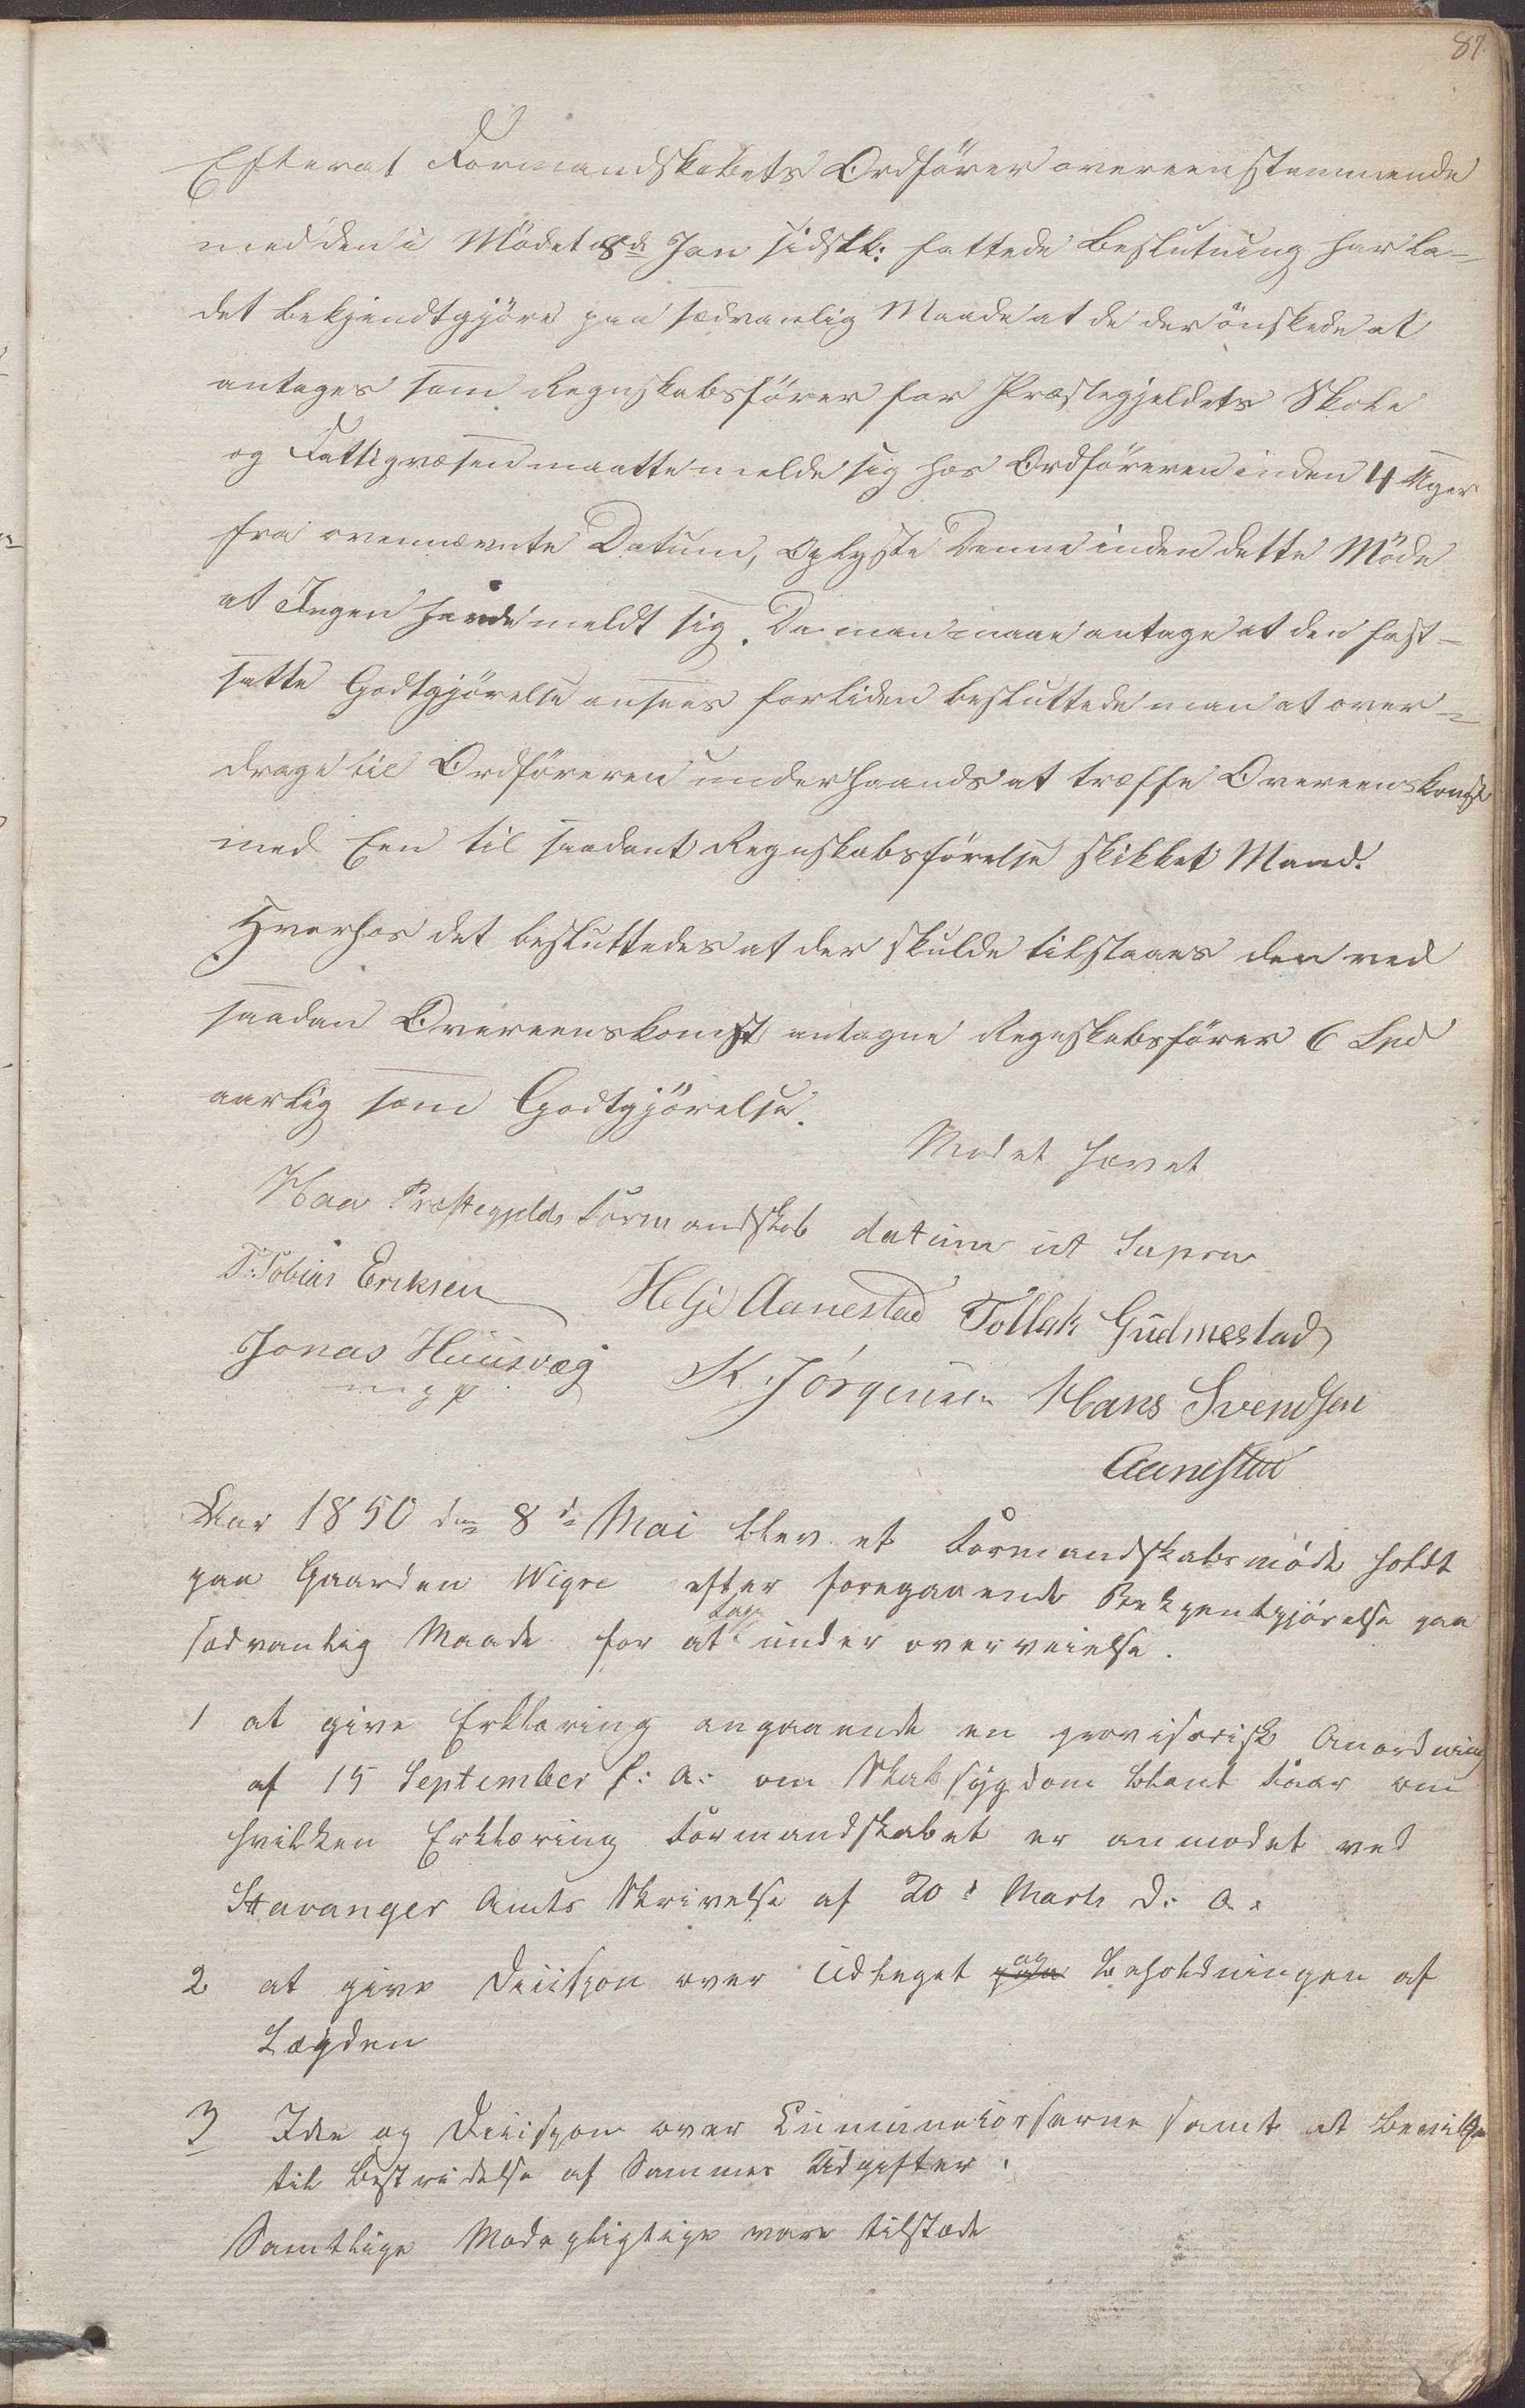 87.
Efterat Formandskabets Ordförer overeenstemmende
med den i Mödet 8de Jan sidstl: fattede Beslutning har la-
det bekjendtgjöre paa sædvanlig Maade at de der önskede at
antages som Regnskabsförer for Præstegjeldets Skole
og Fattigvæsen maatte melde sig hos Ordföreren inden 4 Uger
fra ovennævnte Datum, oplyste Denne inden dette Möde
at Ingen havde meldt sig. Da man maae antage at den fast-
satte Godtgjörelse ansees for liden besluttede man at over-
drage til Ordföreren underhaands at træffe Overeenskomst
med Een til saadant Regnskabsförelse skikket Mand.
Hvorhos det besluttedes at der skulde tilstaaes den ved
saadan Overeenskomst antagne Regnskabsförer 6 Spd
aarlig som Godtgjörelse.
Mødet hævet
Haa Præstegjelds Formandskab datum ut Supra
T: Tobias Eriksen Helje Aanestad Tollak Gudmestad
Jonas Huusvæg K. Jörgensen Hans Svendsen
mpp. Aanestad
Aar 1850 den 8de Mai blev et Formandskabsmöde holdt
paa Gaarden Wigre efter foregaaende Bekjentgjörelse paa
sædvanlig Maade for at tage under overveielse.
1 at give Erklæring angaaende en provisorisk Anordning
af 15 September f: a: om Skabsygdom blant Faar om
hvilken Erklæring Formandskabet er anmodet ved
Stavanger Amts Skrivelse af 20d Marts d: a:
2 at give Decisjon over Udleget og Beholdningen af
Lægden
3 og Decisjon over samt at bevilge
til Bestridelse af Sammes Udgifter.
Samtlige Mødepligtige vare tilstæde